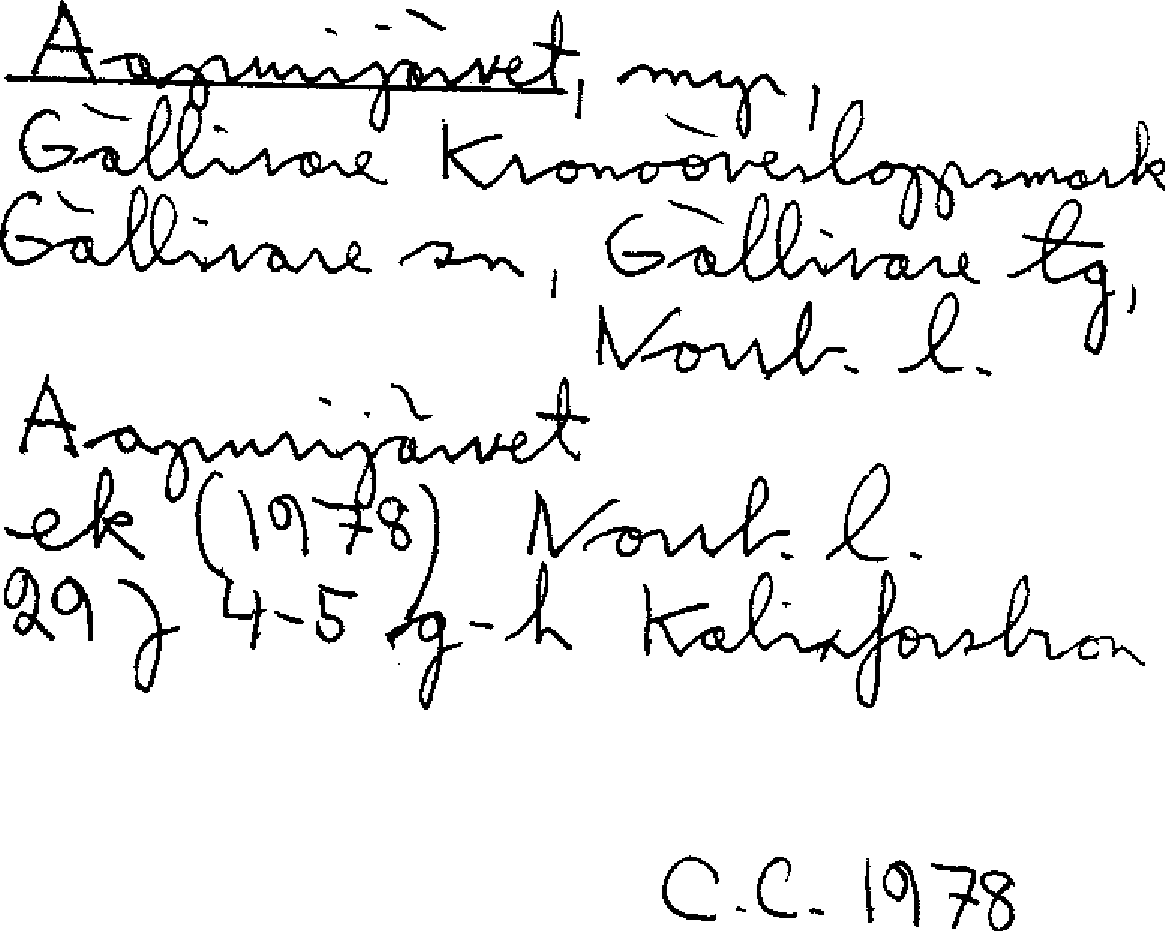 Aapurijärvet, myr,
Gällivare Kronoöverloppsmark
Gällivare sn, Gällivare tg,
Norrb. l.
Aapurijärvet
ek (1978) Norrb. l.
29 J 4-5 g-h Kalixforsbron
C.C. 1978